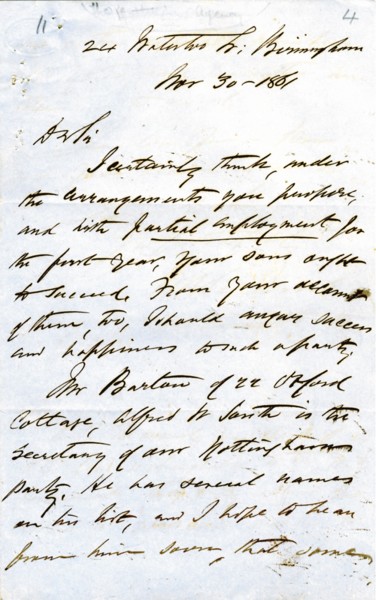 11
4
24 Waterloo St: Birmingham
Nov 30 - 1861
D Sir
I certainly think, under
the arrangements you purpose,
and with partial employment for
the first year, your sons ought
to succeed. From your account
of them, too, I should augur success
and happiness to such a party.
Mr Barton of 22 Oxford
Cottage, Alfred St South is the
Secretary of our Nottingham
party. He has several names
on his list, and I hope to hear
from him soon, that some